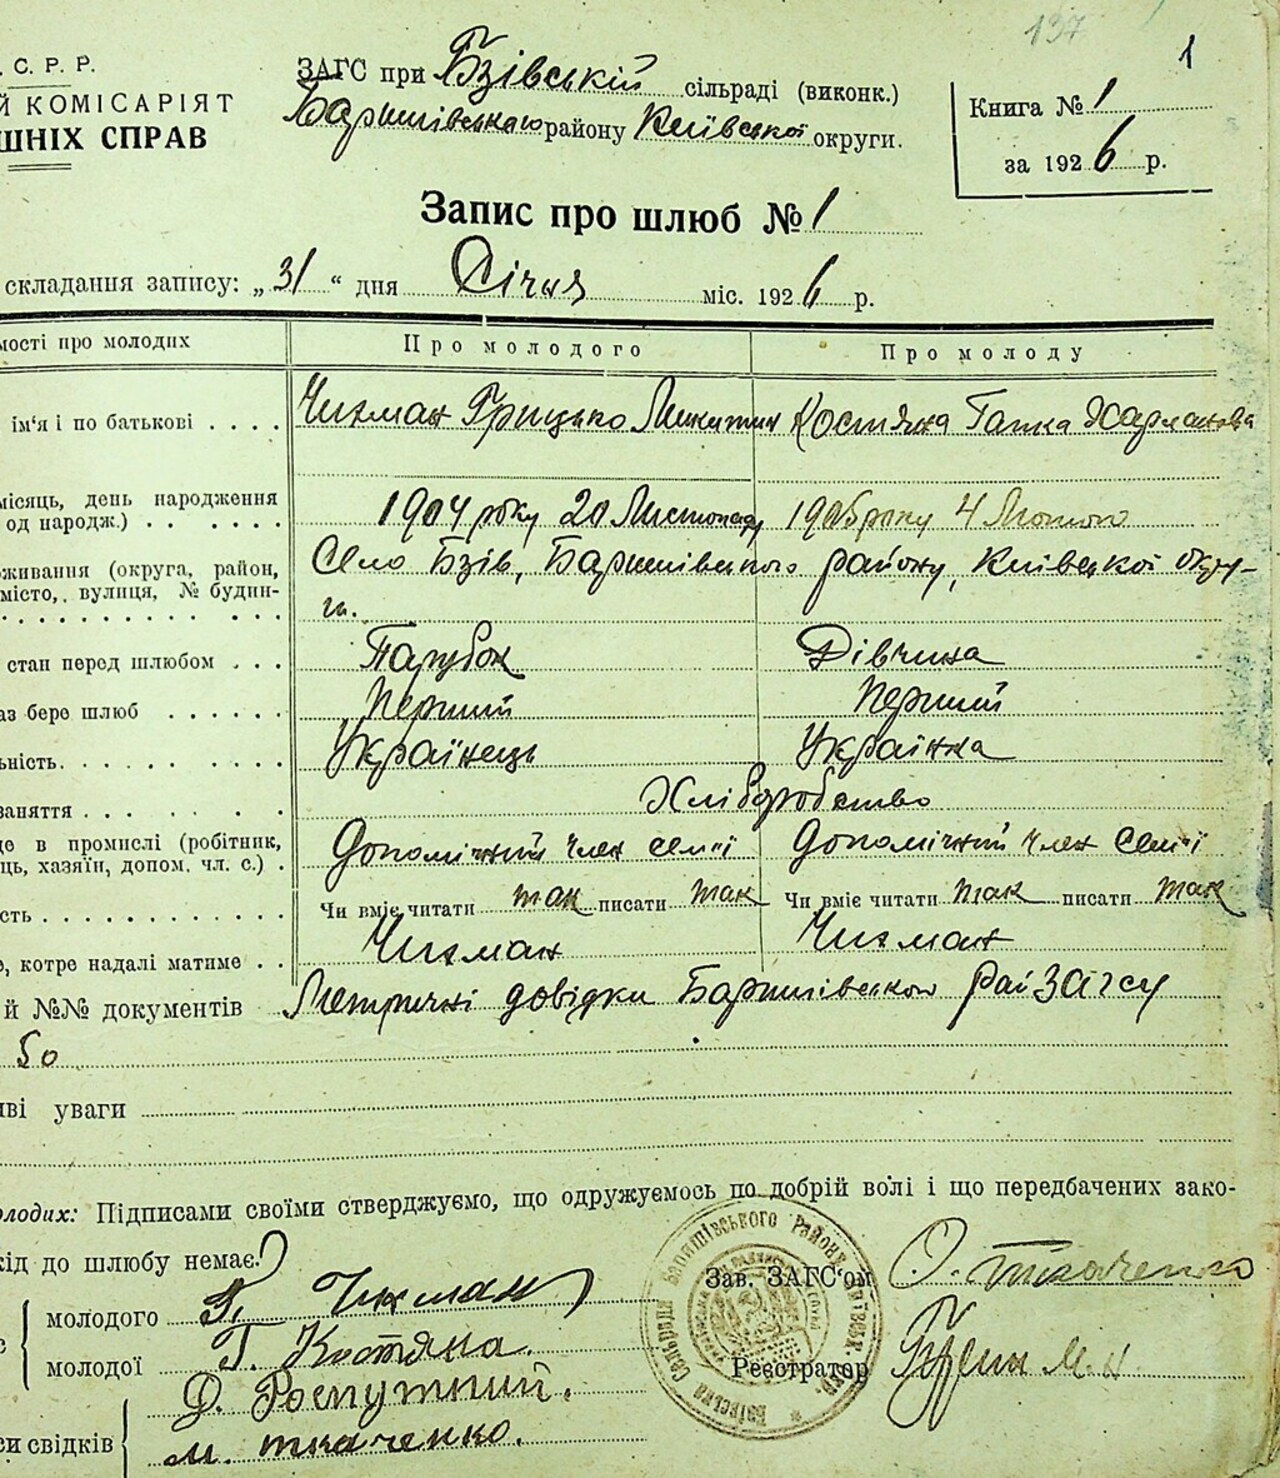 137
1
. С. Р. Р.
Й КОМІСАРІЯТ
ШНІХ СПРАВ
ЗАГС при Бзівській сільраді (виконк.)
Баришівського району Київської округи.
Книга № 1
за 1926 р.
Запис про шлюб № 1
складання запису: „31“ дня Січня міс. 1926 р.
мості про молодих
Про молодого
Про молоду
ім‘я і по батькові . . . .
Чихман Грицько Микитин
Костяна Гапка Харланова
місяць, день народження
од народж.) . . . . . .
1904 року 20 Листопаду
1905 року 4 Лютого
живання (округа, район,
місто,. вулиця, № будин-
Село Бзів, Баришівського району, Київської Окру-
ги.
стан перед шлюбом . . .
Парубок
Дівчина
аз бере шлюб . . . . . .
Перший
Перший
ьність. . . . . . . . .
Українець
Українка
заняття . . . . . . .
Хліборобство
де в промислі (робітник,
ць, хазяїн, допом. чл. с.) .
Допомічний член семії
Допомічний член семії
ість . . . . . . . . . . . . .
Чи вміє читати так писати так
Чи вміє читати так писати так
е, котре надалі матиме . .
Чихман
Чихман
й №№ документів Метричні довідки Баришівського РайЗАГСу
50
иві уваги
олодих: Підписами своїми стверджуємо, що одружуємось по добрій волі і що передбачених зако-
кід до шлюбу немає.
молодого Г. Чихман
молодої Г. Костяна.
Д. Роспутний.
си свідків м. ткаченко.
Зав. ЗАГС‘ом О. Ткаченко
Реєстратор